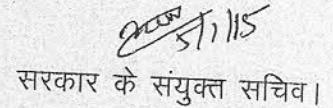 5/1/15
सरकार के संयुक्त सचिव।